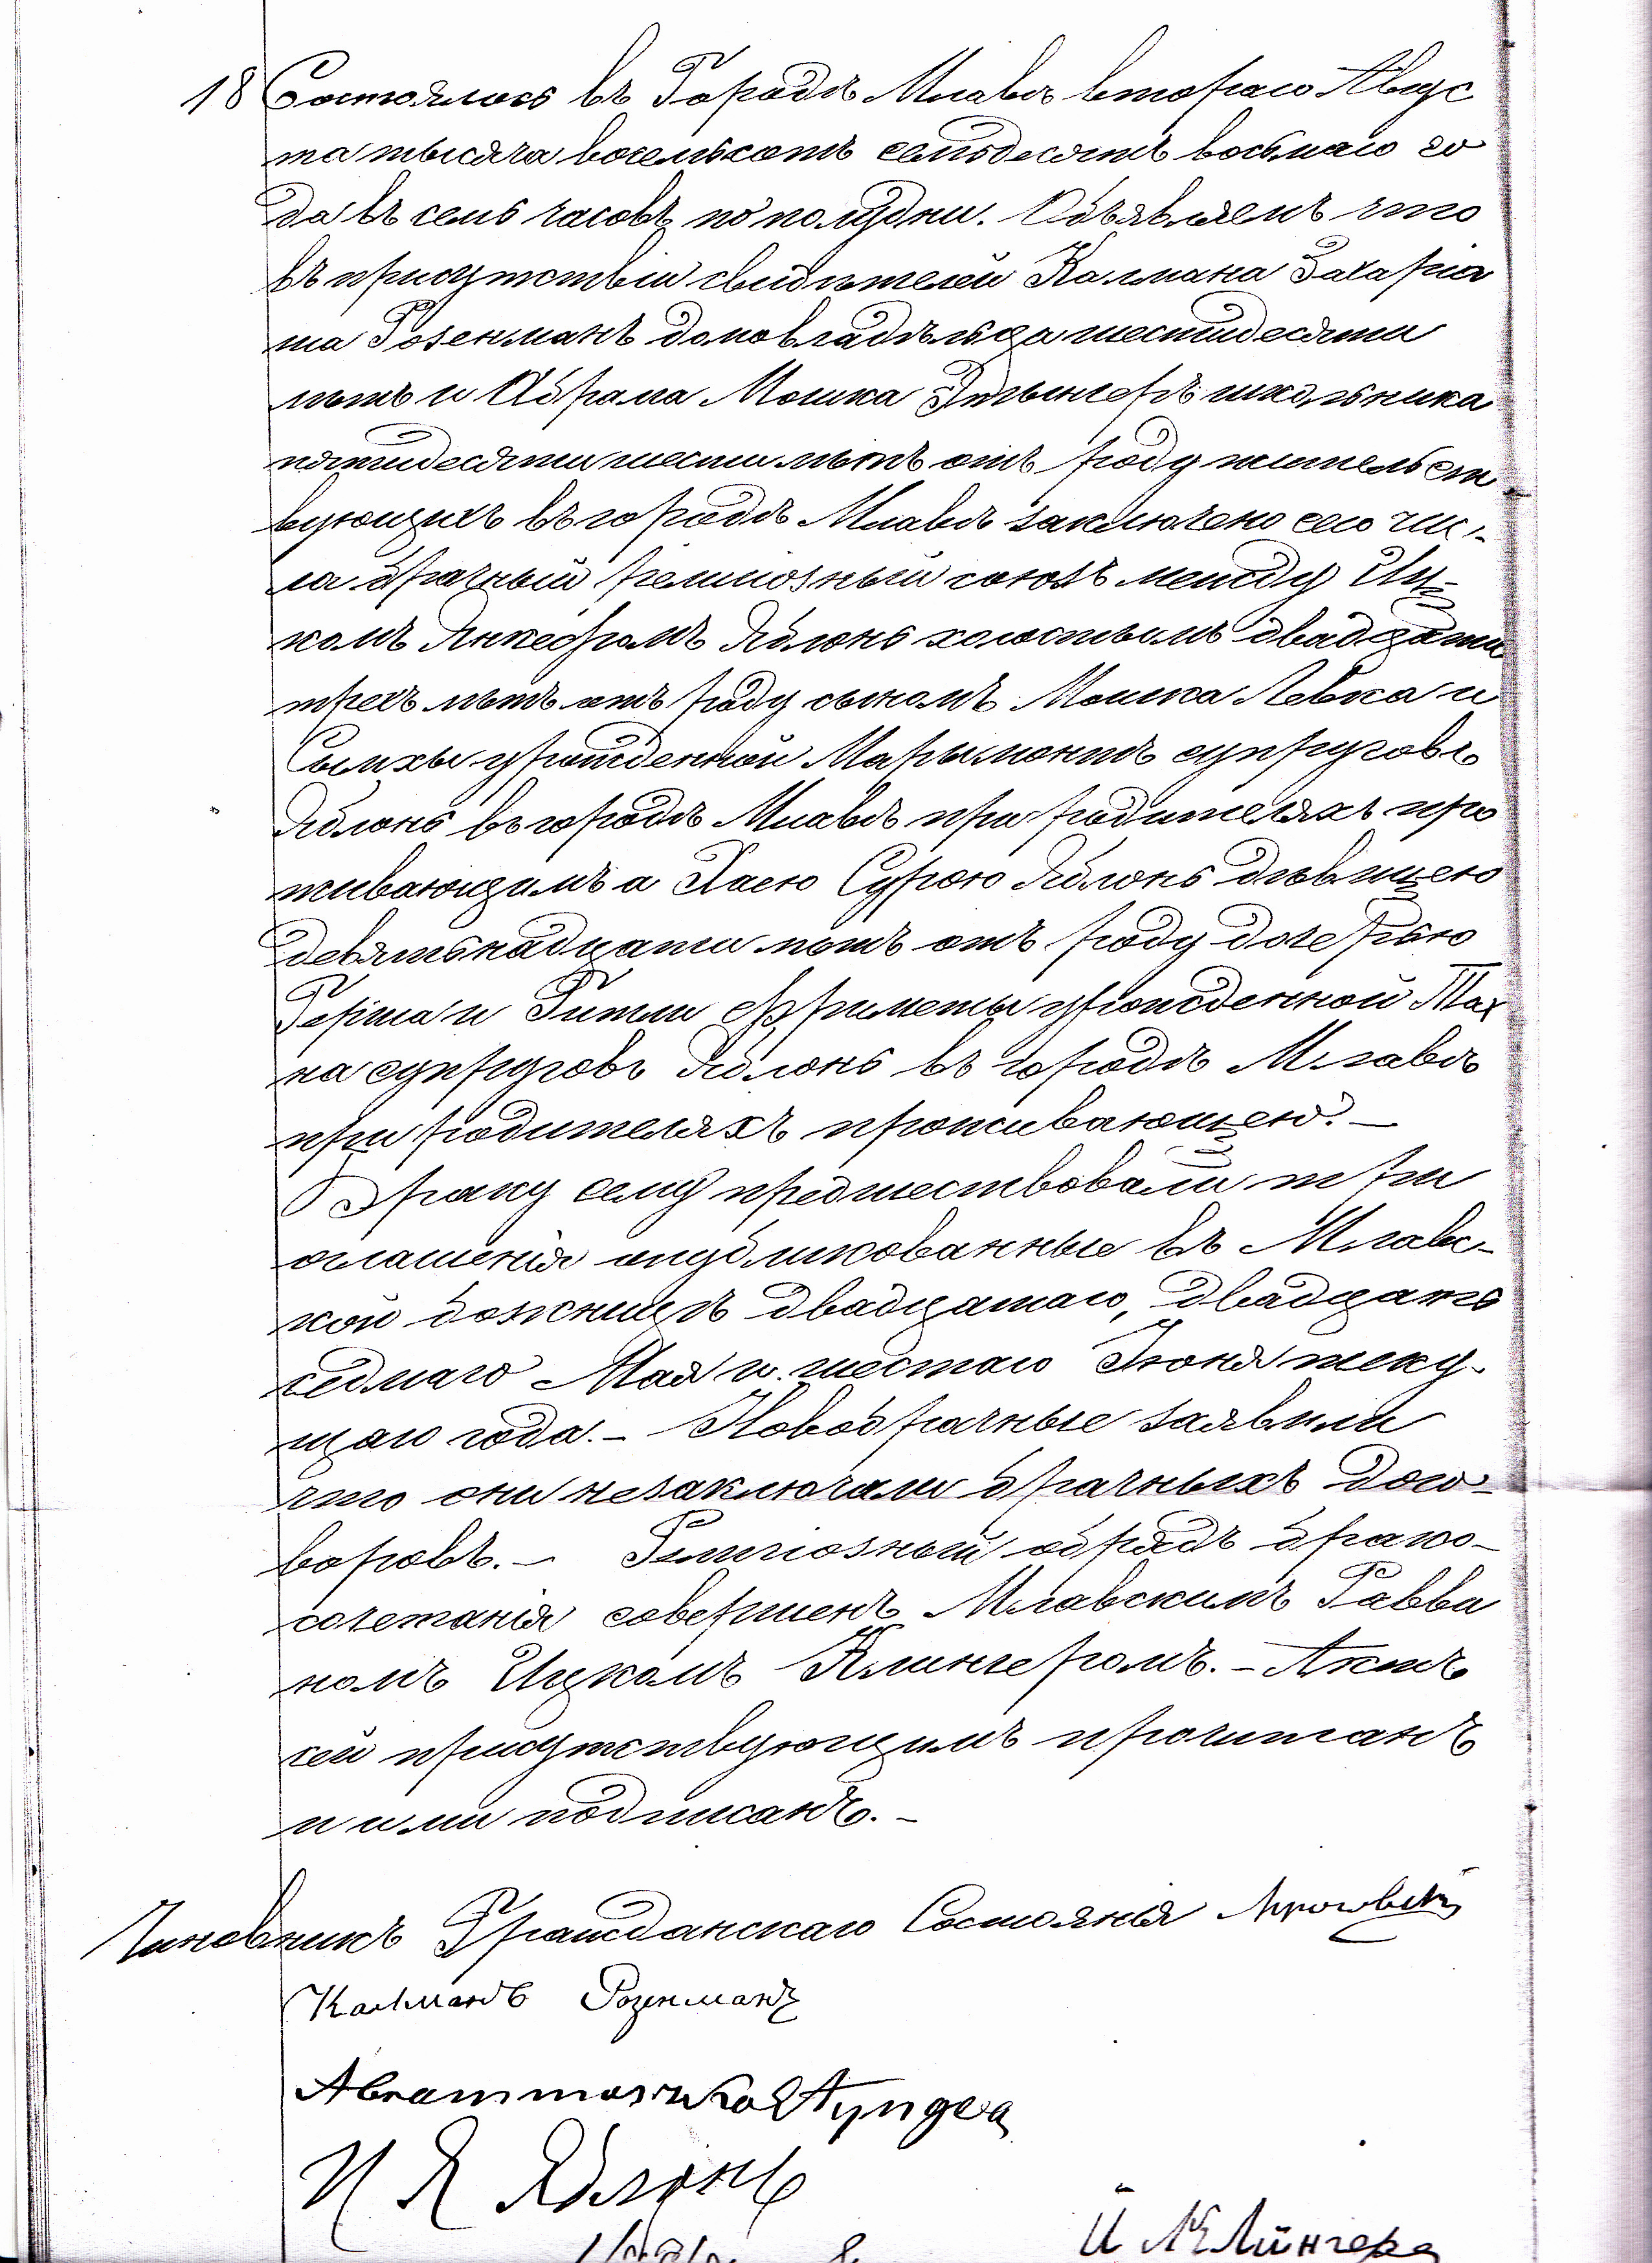 18 Состоялось въ Городѣ Млавѣ втораго Авгус
та тысяча восемьсотъ семьдесятъ восьмаго го
да въ семь часовъ по полудни. Объявляемъ что
въ присутствіи свидѣтелей Калмана Захарія
ша Розенманъ домовладѣльца шестидесяти
лѣтъ и Абрама Мошка школьника
пятидесяти шести лѣтъ отъ роду жительст
вующихъ въ городѣ Млавѣ заключено сего чис
ла брачный религіозный союзъ между Иц-
комъ Янкефомъ Яблонь холостымъ двадцати
трехъ лѣтъ отъ роду сыномъ Мошка Левка и
Сымхы урожденной Марымонтъ супруговъ
Яблонь въ городѣ Млавѣ при родителяхъ про
живающимъ а Хаею Сурою Яблонь дѣвицею
девятьнадцати лѣтъ отъ роду дочерью
Герша и Гитли Фриметы урожденной
на супруговъ Яблонь въ городѣ Млавѣ
при родителяхъ проживающею. —
Браку сему предшествовали три
оглашенія опубликованные въ Млавс-
кой божницѣ двадцатаго, двадцать
седмаго Мая и шестаго Іюня теку-
щаго года. – Новобрачные заявили
что они незаключали брачныхъ дого-
воровъ. – Религіозный обрядъ брако-
сочетанія совершенъ Млавскимъ Равви
номъ Ицкомъ Клингеромъ. – Актъ
сей присутствующимъ прочитанъ
и ими подписанъ. –
Чиновникъ Гражданскаго Состоянія
Кальманъ Розенманъ
И Я Яблонь
И Клингеръ